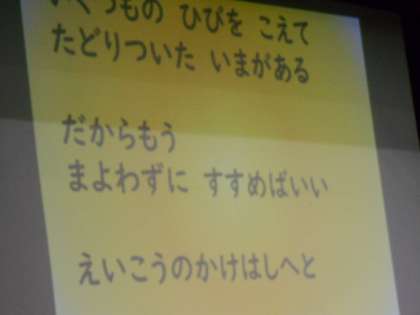 いくつもの ひびを こえて
たどりついた いまがある
だからもう
まよわずに すすめばいい
えいこうのかけはしへと